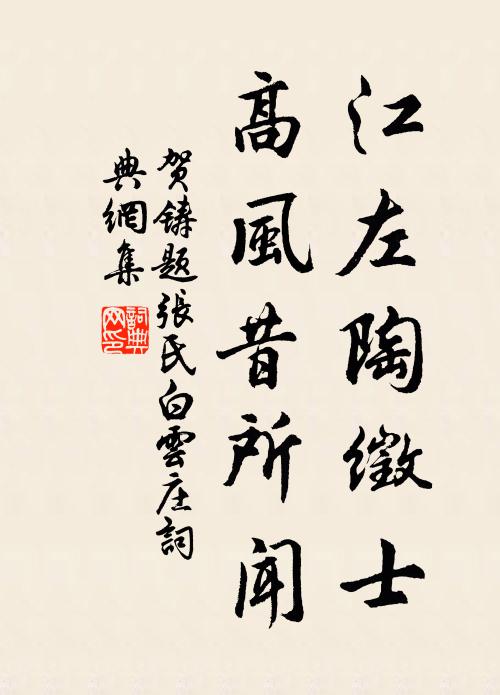 江左陶徵士
高風昔所闻
贺鑄题張氏白雲庄詞
典網集
詞典
网印